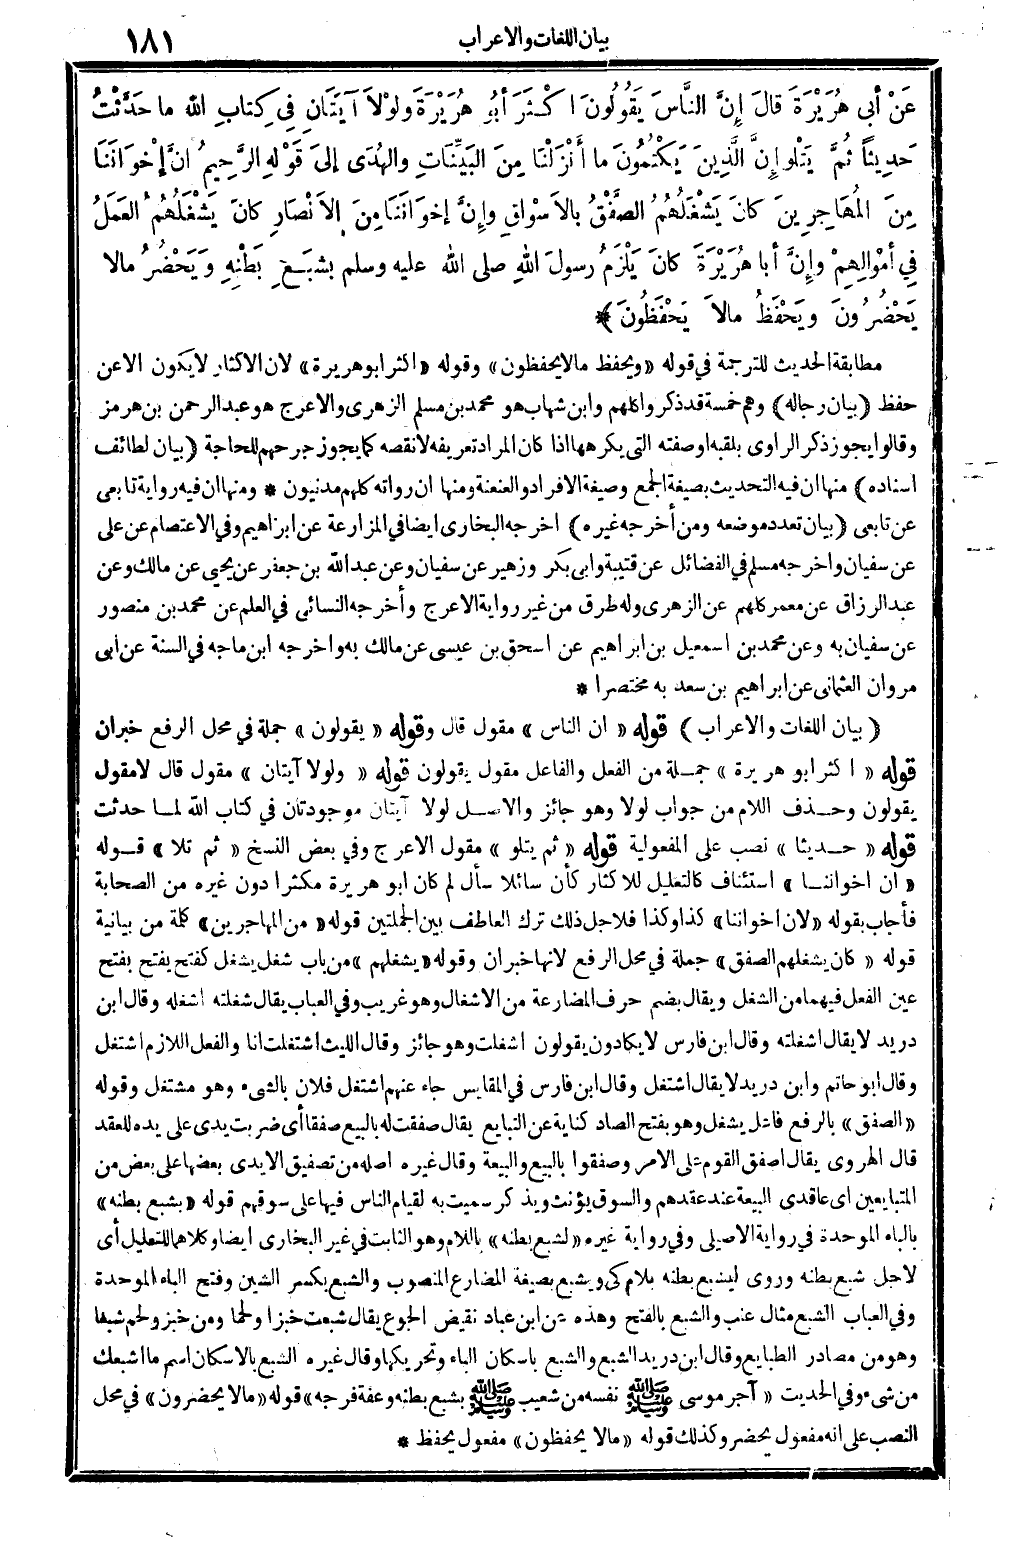 بيان اللغات والاعراب ١٨١
عَنْ أبى هُرَيْرَةَ قالَ إنَّ النَّاسَ يَقُولُونَ اكْثَرَ أبُو هُرَيْرَةَ ولوْلاَ آيَتَانِ فِي كِتابِ اللهِ ما حَدَّثْتُ
حَدِيثاً ثُمَّ يَتْلو إنَّ الَّذِينَ يَكْتُمُونَ ما أنْزَلْنا مِنَ البَيِّنَاتِ والهُدَى إلىَ قَوْلِهِ الرَّحِيمُ انَّ إخْوَانَنَا
مِنَ المُهَاجِرِينَ كانَ يَشْغَلُهُمُ الصَّفْقُ بالأسْوَاقِ وإنَّ إخوَانَنَا مِنَ الأنْصَارِ كانَ يَشْغَلُهُمُ العَمَلُ
فِي أمْوَالِهِمْ وإنَّ أبا هُرَيْرَةَ كانَ يَلْزَمُ رسولَ اللهِ صلى الله عليه وسلم بِشِبَعِ بَطْنِهِ وَيَحْضُرُ مالا
يَحْضُرُونَ ويَحْفَظُ مالاَ يَحْفَظُونَ ﴾ *
مطابقة الحديث للترجمة في قوله «ويحفظ مالا يحفظون» وقوله «اكثر ابو هريرة» لان الاكثار لا يكون الا عن
حفظ (بيان رجاله) وهم خمسة قد ذكروا كلهم وابن شهاب هو محمد بن مسلم الزهرى والاعرج هو عبد الرحمن بن هرمز
وقالوا يجوز ذكر الراوى بلقبه او صفته التى يكرهها اذا كان المراد تعريفه لا نقصه كما يجوز جرحهم للحاجة (بيان لطائف
اسناده) منها ان فيه التحديث بصيغة الجمع وصيغة الافراد والعنعنة ومنها ان رواته كلهم مدنيون * ومنها ان فيه رواية تابعى
عن تابعى (بيان تعدد موضعه ومن أخرجه غيره) اخرجه البخارى ايضا في المزارعة عن ابراهيم وفي الاعتصام عن على
عن سفيان واخرجه مسلم في الفضائل عن قتيبة وابى بكر وزهير عن سفيان وعن عبد الله بن جعفر عن يحيى عن مالك وعن
عبد الرزاق عن معمر كلهم عن الزهرى وله طرق من غير رواية الاعرج وأخرجه النسائى في العلم عن محمد بن منصور
عن سفيان به وعن محمد بن اسمعيل بن ابراهيم عن اسحق بن عيسى عن مالك به واخرجه ابن ماجه في السنة عن ابى
مروان العثمانى عن ابراهيم بن سعد به مختصرا *
(بيان اللغات والاعراب) قوله «ان الناس» مقول قال وقوله «يقولون» جملة في محل الرفع خبران
قوله «اكثر ابو هريرة» جملة من الفعل والفاعل مقول يقولون قوله «ولولا آيتان» مقول قال لا مقول
يقولون وحذف اللام من جواب لولا وهو جائز والاصل لولا آيتان موجودتان في كتاب الله لما حدثت
قوله «حديثا» نصب على المفعولية قوله «ثم يتلو» مقول الاعرج وفي بعض النسخ «ثم تلا» قوله
«ان اخواننا» استئناف كالتعليل للاكثار كأن سائلا سأل لم كان ابو هريرة مكثرا دون غيره من الصحابة
فأجاب بقوله «لان اخواننا» كذا وكذا فلاجل ذلك ترك العاطف بين الجملتين قوله «من المهاجرين» كلمة من بيانية
قوله «كان يشغلهم الصفق» جملة في محل الرفع لانها خبر ان وقوله «يشغلهم» من باب شغل يشغل كفتح يفتح بفتح
عين الفعل فيهما من الشغل ويقال بضم حرف المضارعة من الاشغال وهو غريب وفي العباب يقال شغلته اشغله وقال ابن
دريد لا يقال اشغلته وقال ابن فارس لا يكادون يقولون اشغلت وهو جائز وقال الليث اشتغلت انا والفعل اللازم اشتغل
وقال ابو حاتم وابن دريد لا يقال اشتغل وقال ابن فارس في المقايس جاء عنهم اشتغل فلان بالشىء وهو مشتغل وقوله
«الصفق» بالرفع فاعل يشغل وهو بفتح الصاد كناية عن التبايع يقال صفقت له بالبيع صفقا أى ضربت يدى على يده للعقد
قال الهروى يقال اصفق القوم على الامر وصفقوا بالبيع والبيعة وقال غيره اصله من تصفيق الايدى بعضها على بعض من
المتبايعين اى عاقدى البيعة عند عقدهم والسوق يؤنث ويذكر سميت به لقيام الناس فيها على سوقهم قوله «بشبع بطنه»
بالباء الموحدة في رواية الاصيلى وفي رواية غيره «لشبع بطنه» باللام وهو الثابت في غير البخارى ايضا وكلاهما للتعليل أى
لاجل شبع بطنه وروى ليشبع بطنه بلام كى ويشبع بصيغة المضارع المنصوب والشبع بكسر الشين وفتح الباء الموحدة
وفي العباب الشبع مثال عنب والشبع بالفتح وهذه عن ابن عباد نقيض الجوع يقال شبعت خبزا ولحما ومن خبز ولحم شبعا
وهو من مصادر الطبايع وقال ابن دريد الشبع والشبع باسكان الباء وتحريكها وقال غيره الشبع بالاسكان اسم ما اشبعك
من شىء وفي الحديث «آجر موسى ﷺ نفسه من شعيب ﷺ بشبع بطنه وعفة فرجه» قوله «مالا يحضرون» في محل
النصب على انه مفعول يحضر وكذلك قوله «مالا يحفظون» مفعول يحفظ *